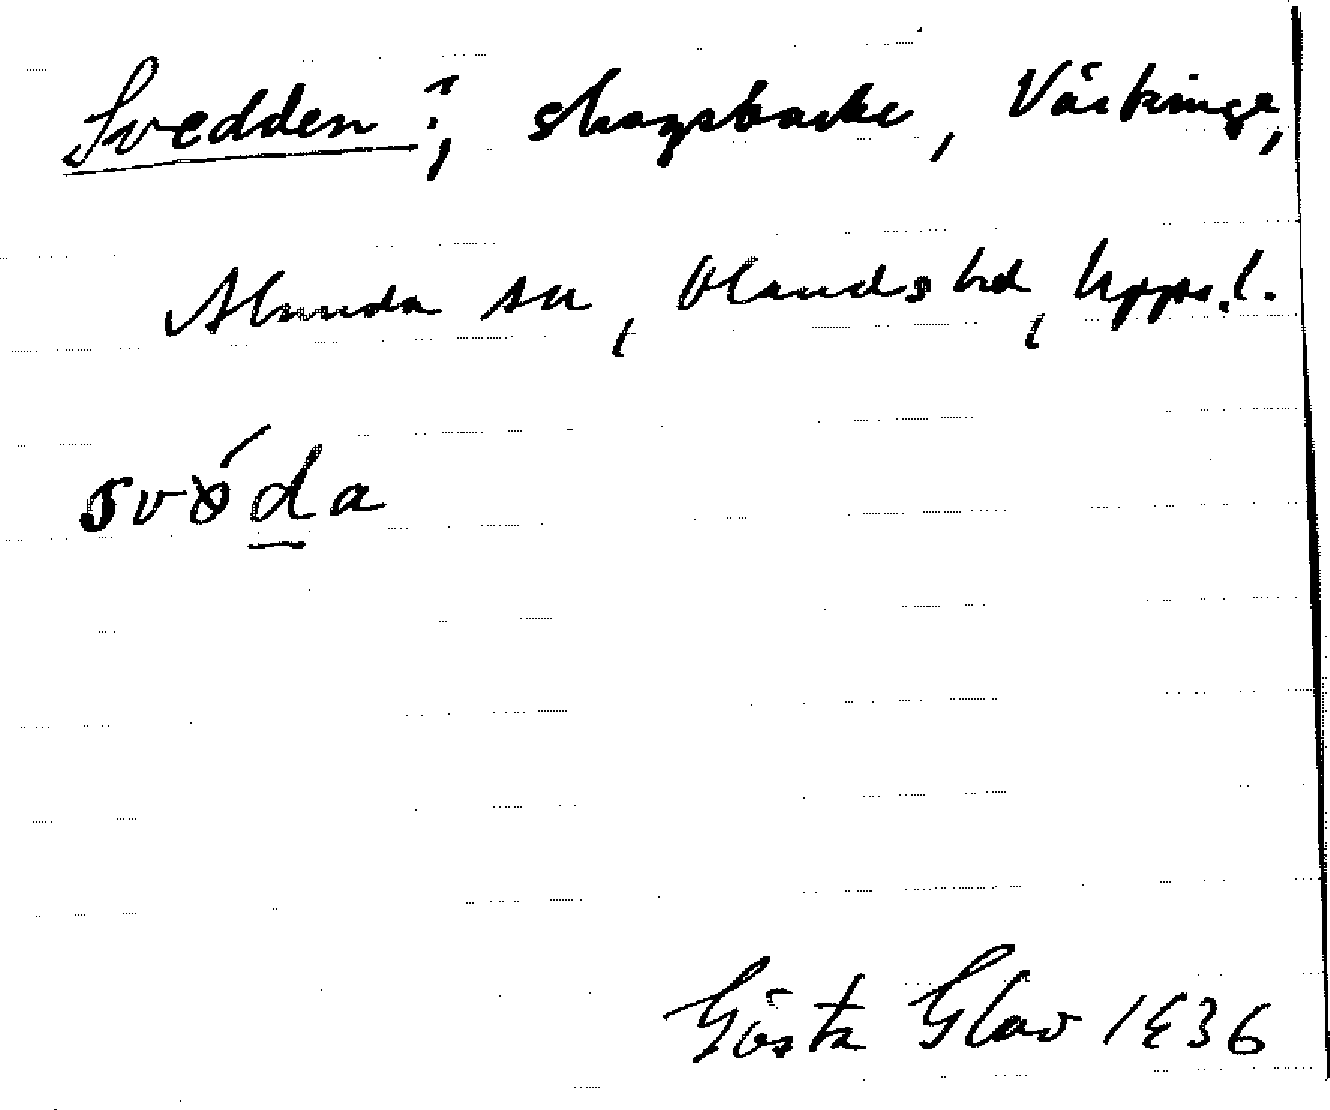 Svedden ?; skogsbacke, Västringe,
Alunda sn, Olands hd, Upps. l.
svǿda
Gösta Glav 1936